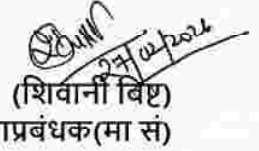 27/02/2026
(शिवानी बिष्ट)
ाप्रबंधक(मा सं)